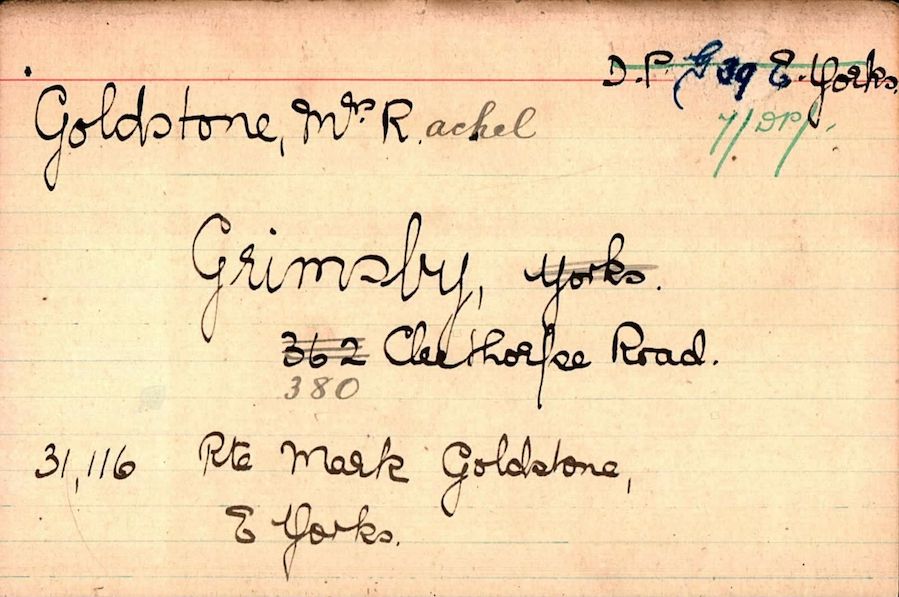 D.P. G 39 E. Yorks.
Goldstone, Mrs Rachel
Grimsby, Yorks.
362 Cleethorpe Road.
380
31,116 Pte Mark Goldstone,
E Yorks.